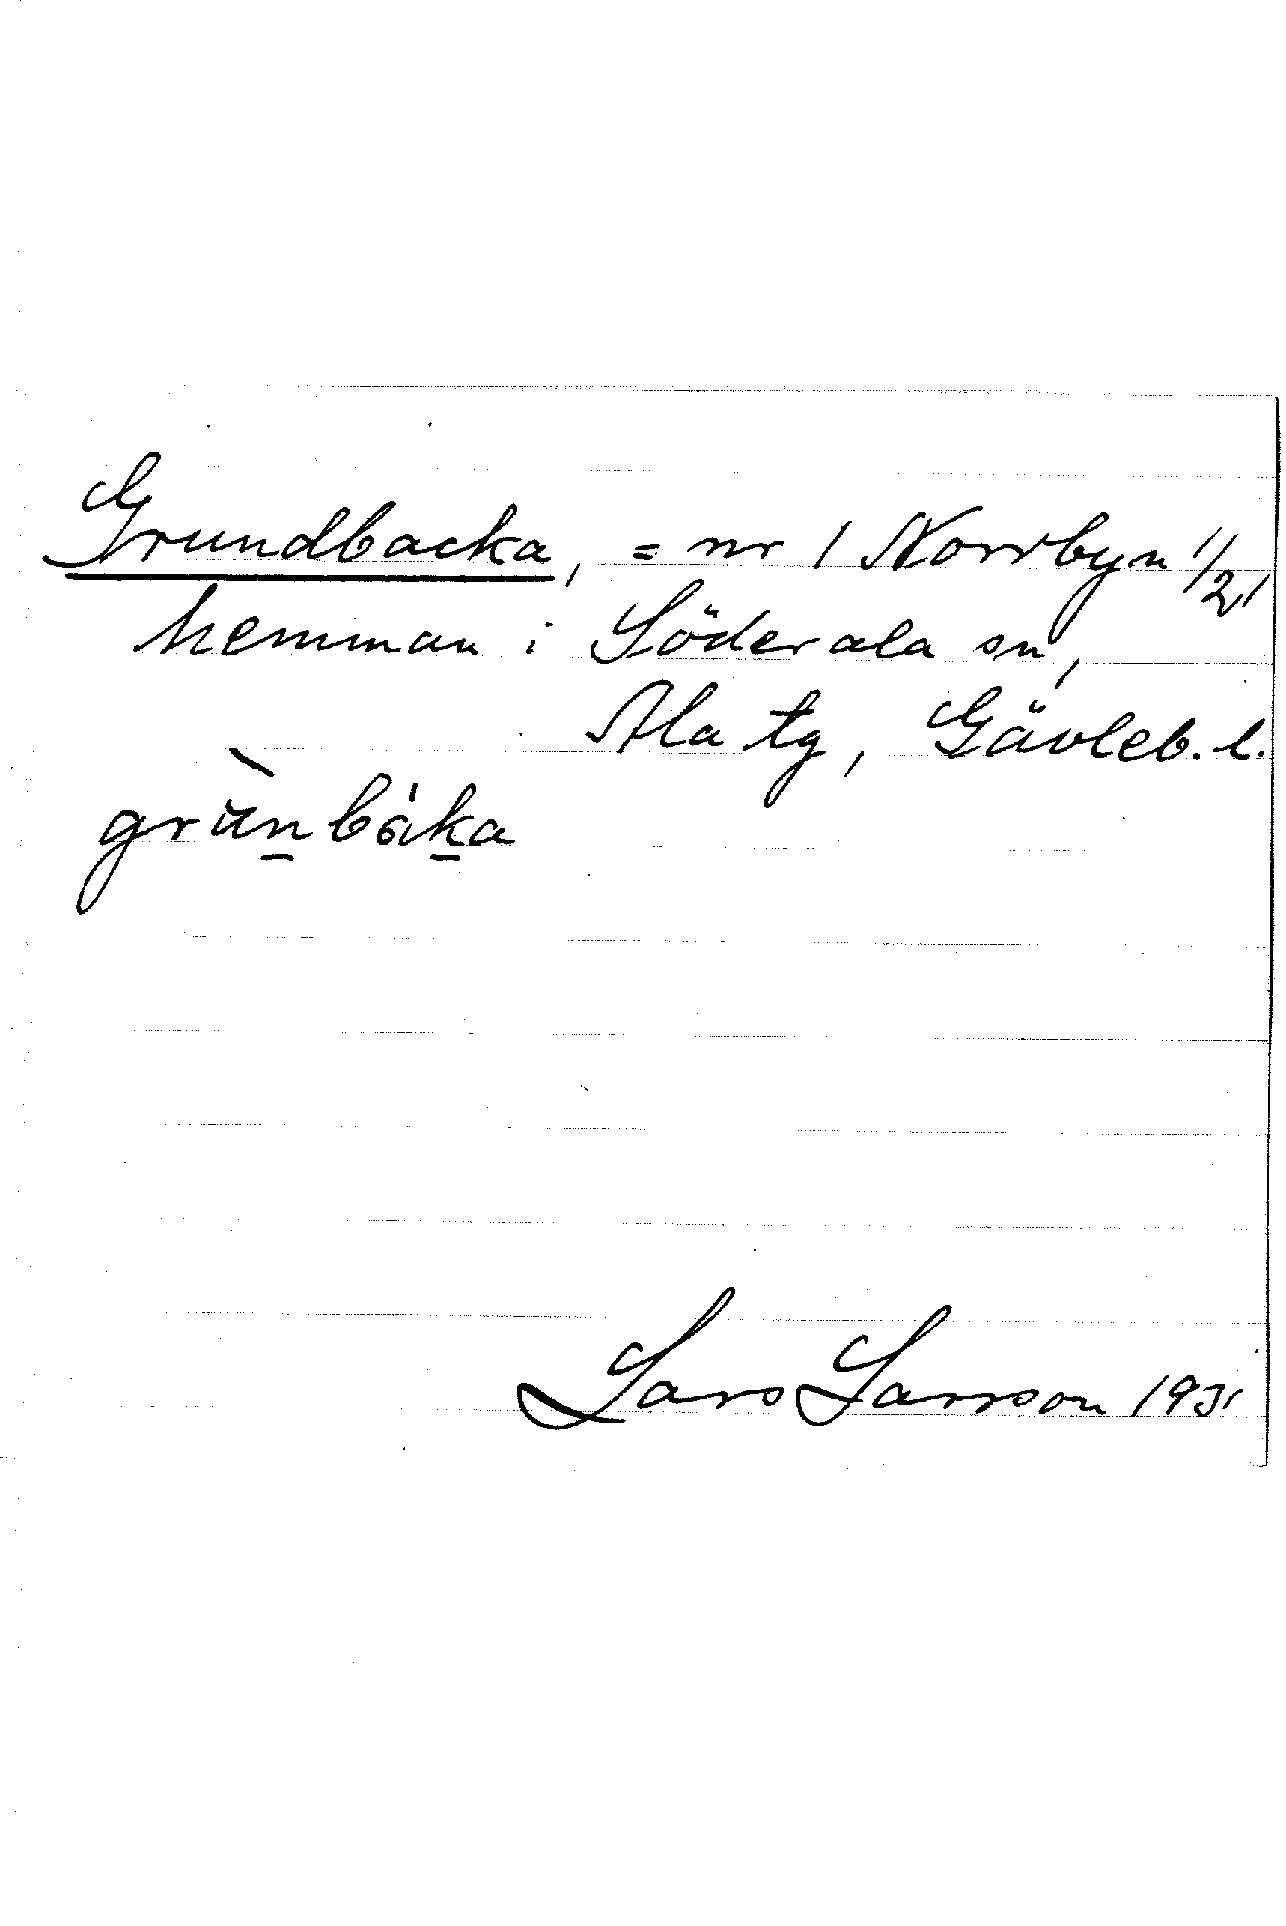 Grundbacka, = nr 1 Norrbyn 1/2,
hemman i Söderala sn,
Ala tg, Gävleb. l.
grùnbáka
Lars Larsson 1931